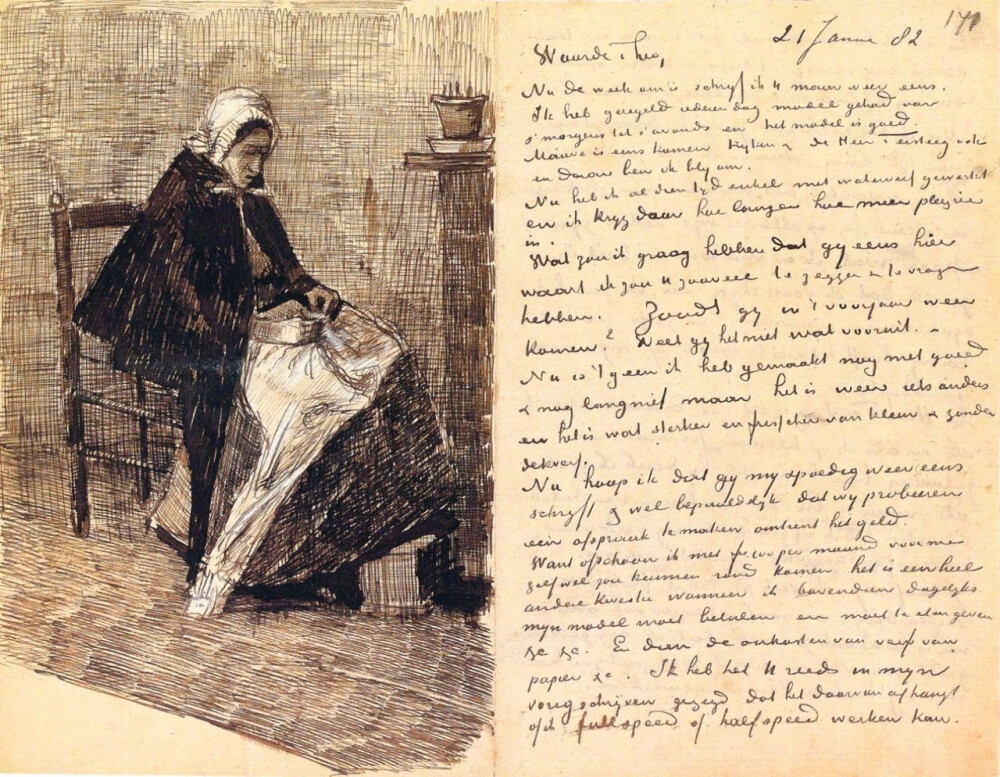 171
21 Januari 82
Waarde Theo,
Nu de week om is schrijf ik U maar weer eens.
Ik heb geregeld iederen dag model gehad van
s'morgens tot s'avonds en het model is goed.
Mauve is eens komen kijken & de Heer Tersteeg ook
en daar ben ik blij om.
Nu heb ik al dien tijd enkel met waterverf gewerkt
en ik krijg daar hoe langer hoe meer pleizier
in.
Wat zou ik graag hebben dat gij eens hier
waart ik zou U zooveel te zeggen & te vragen
hebben. Zoudt gij in 't voorjaar weer
komen? Weet gij het niet wat vooruit. –
Nu is 't geen ik heb gemaakt nog niet goed
& nog lang niet maar het is weer iets anders
en het is wat sterker en frisscher van kleur & zonder
dekverf.
Nu hoop ik dat gij mij spoedig weer eens
schrijft & wel bepaaldelijk dat wij probeeren
een afspraak te maken omtrent het geld.
Want ofschoon ik met fr. 100 per maand voor me
zelf wel zou kunnen rond komen het is een heel
andere kwestie wanneer ik bovendien dagelijks
mijn model moet betalen en moet te eten geven
&c &c. En dan de onkosten van verf van
papier &c. Ik heb het U reeds in mijn
vorig schrijven gezegd dat het daarvan afhangt
of ik full speed of half speed werken kan.